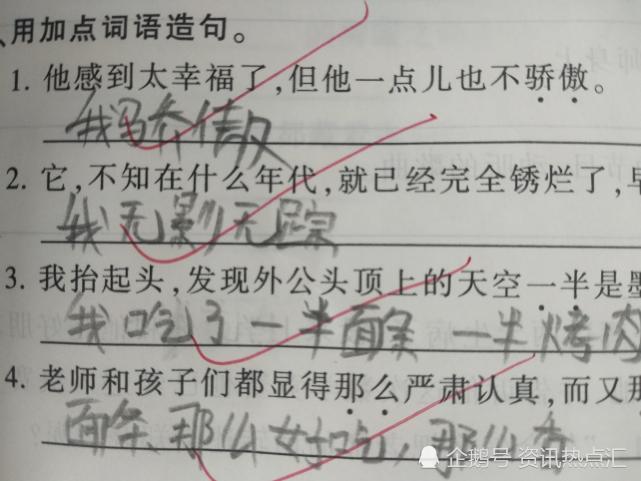 、用加点词语造句。
1. 他感到太幸福了,但他一点儿也不骄傲。
我骄傲
2. 它,不知在什么年代,就已经完全锈烂了,早
我无影无踪
3. 我抬起头,发现外公头顶上的天空一半是墨
我吃了一半面条 一半烤肉
4. 老师和孩子们都显得那么严肃认真,而又那
面条那么好吃,那么香
企鹅号 资讯热点汇